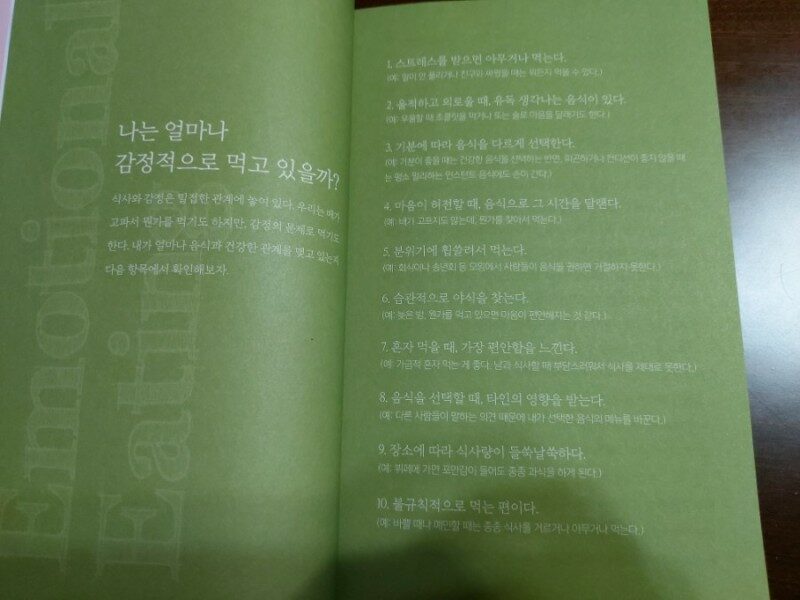 Emotional
Eatin
나는 얼마나
감정적으로 먹고 있을까?
식사와 감정은 밀접한 관계에 놓여 있다. 우리는 배가
고파서 뭔가를 먹기도 하지만, 감정의 문제로 먹기도
한다. 내가 얼마나 음식과 건강한 관계를 맺고 있는지
다음 항목에서 확인해보자.
1. 스트레스를 받으면 아무거나 먹는다.
(예: 일이 안 풀리거나 친구와 싸웠을 때는 뭐든지 먹을 수 있다.)
2. 울적하고 외로울 때, 유독 생각나는 음식이 있다.
(예: 우울할 때 초콜릿을 먹거나 또는 술로 마음을 달래기도 한다.)
3. 기분에 따라 음식을 다르게 선택한다.
(예: 기분이 좋을 때는 건강한 음식을 선택하는 반면, 피곤하거나 컨디션이 좋지 않을 때
는 평소 멀리하는 인스턴트 음식에도 손이 간다.)
4. 마음이 허전할 때, 음식으로 그 시간을 달랜다.
(예: 배가 고프지도 않는데, 뭔가를 찾아서 먹는다.)
5. 분위기에 휩쓸려서 먹는다.
(예: 회식이나 송년회 등 모임에서 사람들이 음식을 권하면 거절하지 못한다.)
6. 습관적으로 야식을 찾는다.
(예: 늦은 밤, 뭔가를 먹고 있으면 마음이 편안해지는 것 같다.)
7. 혼자 먹을 때, 가장 편안함을 느낀다.
(예: 가급적 혼자 먹는 게 좋다. 남과 식사할 때 부담스러워서 식사를 제대로 못한다.)
8. 음식을 선택할 때, 타인의 영향을 받는다.
(예: 다른 사람들이 말하는 의견 때문에 내가 선택한 음식의 메뉴를 바꾼다.)
9. 장소에 따라 식사량이 들쑥날쑥하다.
(예: 뷔페에 가면 포만감이 들어도 종종 과식을 하게 된다.)
10. 불규칙적으로 먹는 편이다.
(예: 바쁠 때나 예민할 때는 종종 식사를 거르거나 아무거나 먹는다.)